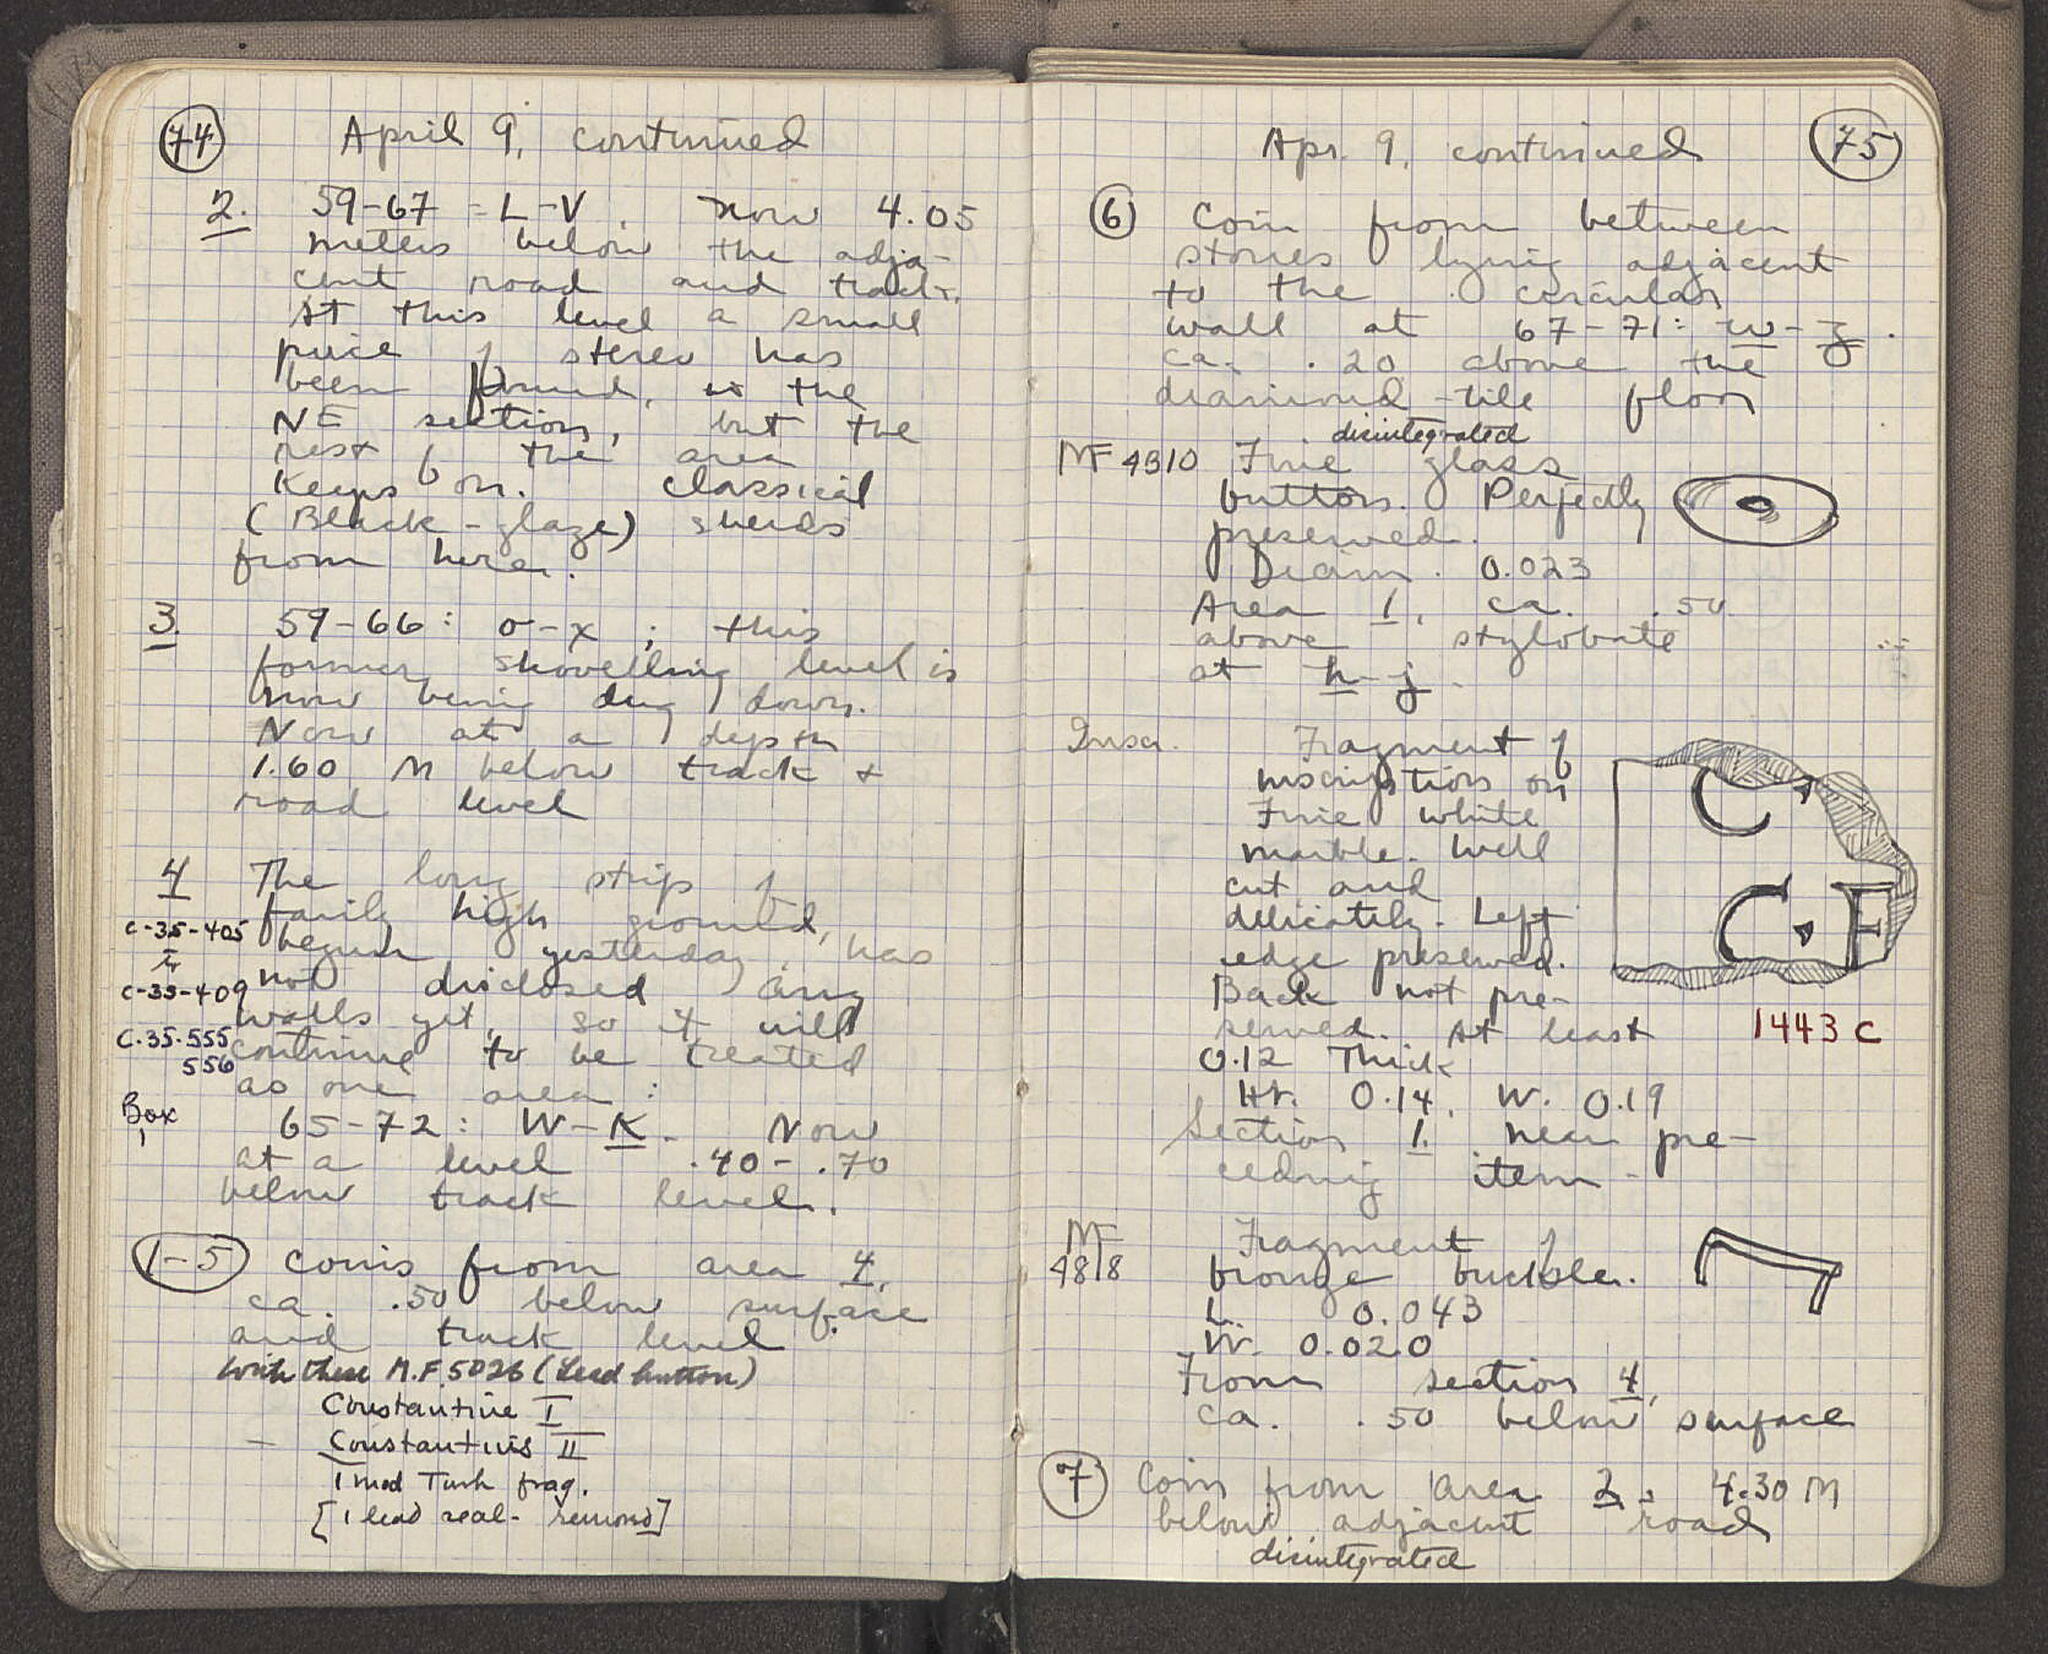 74
April 9, continued
2. 59-67 = L-V. Now 4.05
meters below the adja-
cent road and track.
At this level a small
piece of stereo has
been found, in the
NE section, but the
rest of the area
keeps on. Classical
(Black-glaze) sherds
from here.
3. 59-66: o-x; this
former shovelling level is
now being dug down.
Now at a depth
1.60 M below track +
road level
4 The long strip of
fairly high ground,
C-35-405
begun yesterday, has
not disclosed any
C-35-409
walls yet, so it will
C.35.555
continue to be treated
556
as one area:
Box
1
65-72: W-K. Now
at a level .40-.70
below track level.
1-5 coins from area 4,
ca. .50 below surface
and track level.
With these M.F. 5026 (Lead button)
Constantine I
- Constantius II
1 mod Turk frag.
[1 lead seal - removed]
Apr. 9, continued
75
6 Coin from between
stones lying adjacent
to the circular
wall at 67-71: w-z.
ca. .20 above the
diamond-tile floor
disintegrated
MF 4310 Fine glass
button. Perfectly
preserved.
Diam. 0.023
Area 1, ca. .50
above stylobate
at h-j.
Inscr. Fragment of
inscription on
Fine white
marble. Well
cut and
delicately. Left
edge preserved.
Back not pre-
served. At least
0.12 Thick
Ht. 0.14, W. 0.19
Section 1. near pre-
ceding item -
C
C.F
1443 C
MF
4818
Fragment of
bronze buckle.
L. 0.043
W. 0.020
From section 4,
ca. .50 below surface
7 Coin from area 2, 4.30 M
below adjacent road
disintegrated